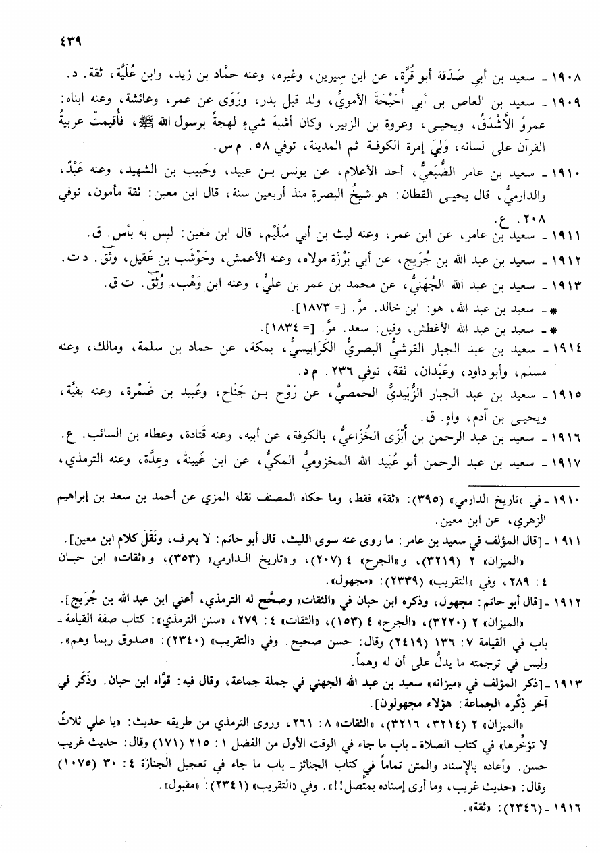 ٤٣٩
١٩٠٨ ـ سعيد بن أبي صَدَقة أبو قُرَّة، عن ابن سِيرين، وغيره، وعنه حمَّاد بن زيد، وابن عُلَيَّة، ثقة. د.
١٩٠٩ ـ سعيد بن العاص بن أبي أُحَيْحَةَ الأمويُّ، ولد قبل بدر، ورَوَى عن عمر، وعائشة، وعنه ابناه:
عمرٌو الأشْدَقُ، ويحيـى، وعروة بن الزبير، وكان أشبهَ شيءٍ لهجةً برسول الله ﷺ، فأُقيمتْ عربيةُ
القرآن على لسانه، ولِيَ إمرة الكوفة ثم المدينة، توفي ٥٨. م س.
١٩١٠ ـ سعيد بن عامر الضُّبَعيُّ، أحد الأعلام، عن يونس بـن عبيد، وحَبيب بن الشهيد، وعنه عَبْدٌ،
والدارميُّ، قال يحيـى القطان: هو شيخُ البصرة منذ أربعين سنة، قال ابن معين: ثقة مأمون، توفي
٢٠٨. ع.
١٩١١ ـ سعيد بن عامر، عن ابن عمر، وعنه ليث بن أبي سُلَيْم، قال ابن معين: ليس به بأس. ق.
١٩١٢ ـ سعيد بن عبد الله بن جُرَيج، عن أبي بَرْزة مولاه، وعنه الأعمش، وحَوْشَب بن عَقيل، وُثِّق. د ت.
١٩١٣ ـ سعيد بن عبد الله الجُهَنيُّ، عن محمد بن عمر بن عليٍّ، وعنه ابن وَهْب، وُثِّق. ت ق.
* ـ سعيد بن عبد الله، هو: ابن خالد. مرَّ. [= ١٨٧٣].
* ـ سعيد بن عبد الله الأغطش، وقيل: سعد. مرَّ. [= ١٨٣٤].
١٩١٤ ـ سعيد بن عبد الجبار القرشيُّ البصريُّ الكَرَابيسيُّ، بمكة، عن حماد بن سلمة، ومالك، وعنه
مسلم، وأبو داود، وعَبْدان، ثقة، توفي ٢٣٦. م د.
١٩١٥ ـ سعيد بن عبد الجبار الزُّبيديُّ الحمصيُّ، عن رَوْح بـن جَنَاح، وعُبيد بن ضَمْرة، وعنه بقيَّة،
ويحيـى بن آدم، واهٍ. ق.
١٩١٦ ـ سعيد بن عبد الرحمن بن أَبْزَى الخُزَاعيُّ، بالكوفة، عن أبيه، وعنه قَتَادة، وعطاء بن السائب. ع.
١٩١٧ ـ سعيد بن عبد الرحمن أبو عُبَيد الله المخزوميُّ المكيُّ، عن ابن عُيينة، وعِدَّة، وعنه الترمذي،
١٩١٠ ـ في «تاريخ الدارمي» (٣٩٥): «ثقة» فقط، وما حكاه المصنف نقله المزي عن أحمد بن سعد بن إبراهيم
الزهري، عن ابن معين.
١٩١١ ـ [قال المؤلف في سعيد بن عامر: ما روى عنه سوى الليث، قال أبو حاتم: لا يعرف، ونَقَلَ كلام ابن معين].
«الميزان» ٢ (٣٢١٩)، و«الجرح» ٤ (٢٠٧)، و«تاريخ الـدارمي» (٣٥٣)، و«ثقات» ابن حبـان
٤: ٢٨٩، وفي «التقريب» (٢٣٣٩): «مجهول».
١٩١٢ ـ [قال أبو حاتم: مجهول، وذكره ابن حبان في «الثقات» وصحَّح له الترمذي، أعني ابن عبد الله بن جُرَيج].
«الميزان» ٢ (٣٢٢٠)، «الجرح» ٤ (١٥٣)، «الثقات» ٤: ٢٧٩، «سنن الترمذي»: كتاب صفة القيامة ـ
باب في القيامة ٧: ١٣٦ (٢٤١٩) وقال: حسن صحيح. وفي «التقريب» (٢٣٤٠): «صدوق ربما وهم».
وليس في ترجمته ما يدلُّ على أن له وهماً.
١٩١٣ ـ [ذكر المؤلف في «ميزانه» سعيد بن عبد الله الجهني في جملة جماعة، وقال فيه: قوَّاه ابن حبان. وذَكَر في
آخر ذِكْره الجماعة: هؤلاء مجهولون].
«الميزان» ٢ (٣٢١٤، ٣٢١٦)، «الثقات» ٨: ٢٦١، وروى الترمذي من طريقه حديث: «يا علي ثلاثٌ
لا تؤخِّرها» في كتاب الصلاة ـ باب ما جاء في الوقت الأول من الفضل ١: ٢١٥ (١٧١) وقال: حديث غريب
حسن. وأعاده بالإسناد والمتن تماماً في كتاب الجنائز ـ باب ما جاء في تعجيل الجنازة ٤: ٣٠ (١٠٧٥)
وقال: «حديث غريب، وما أرى إسناده بمتَّصل!!». وفي «التقريب» (٢٣٤١): «مقبول».
١٩١٦ ـ (٢٣٤٦): «ثقة».